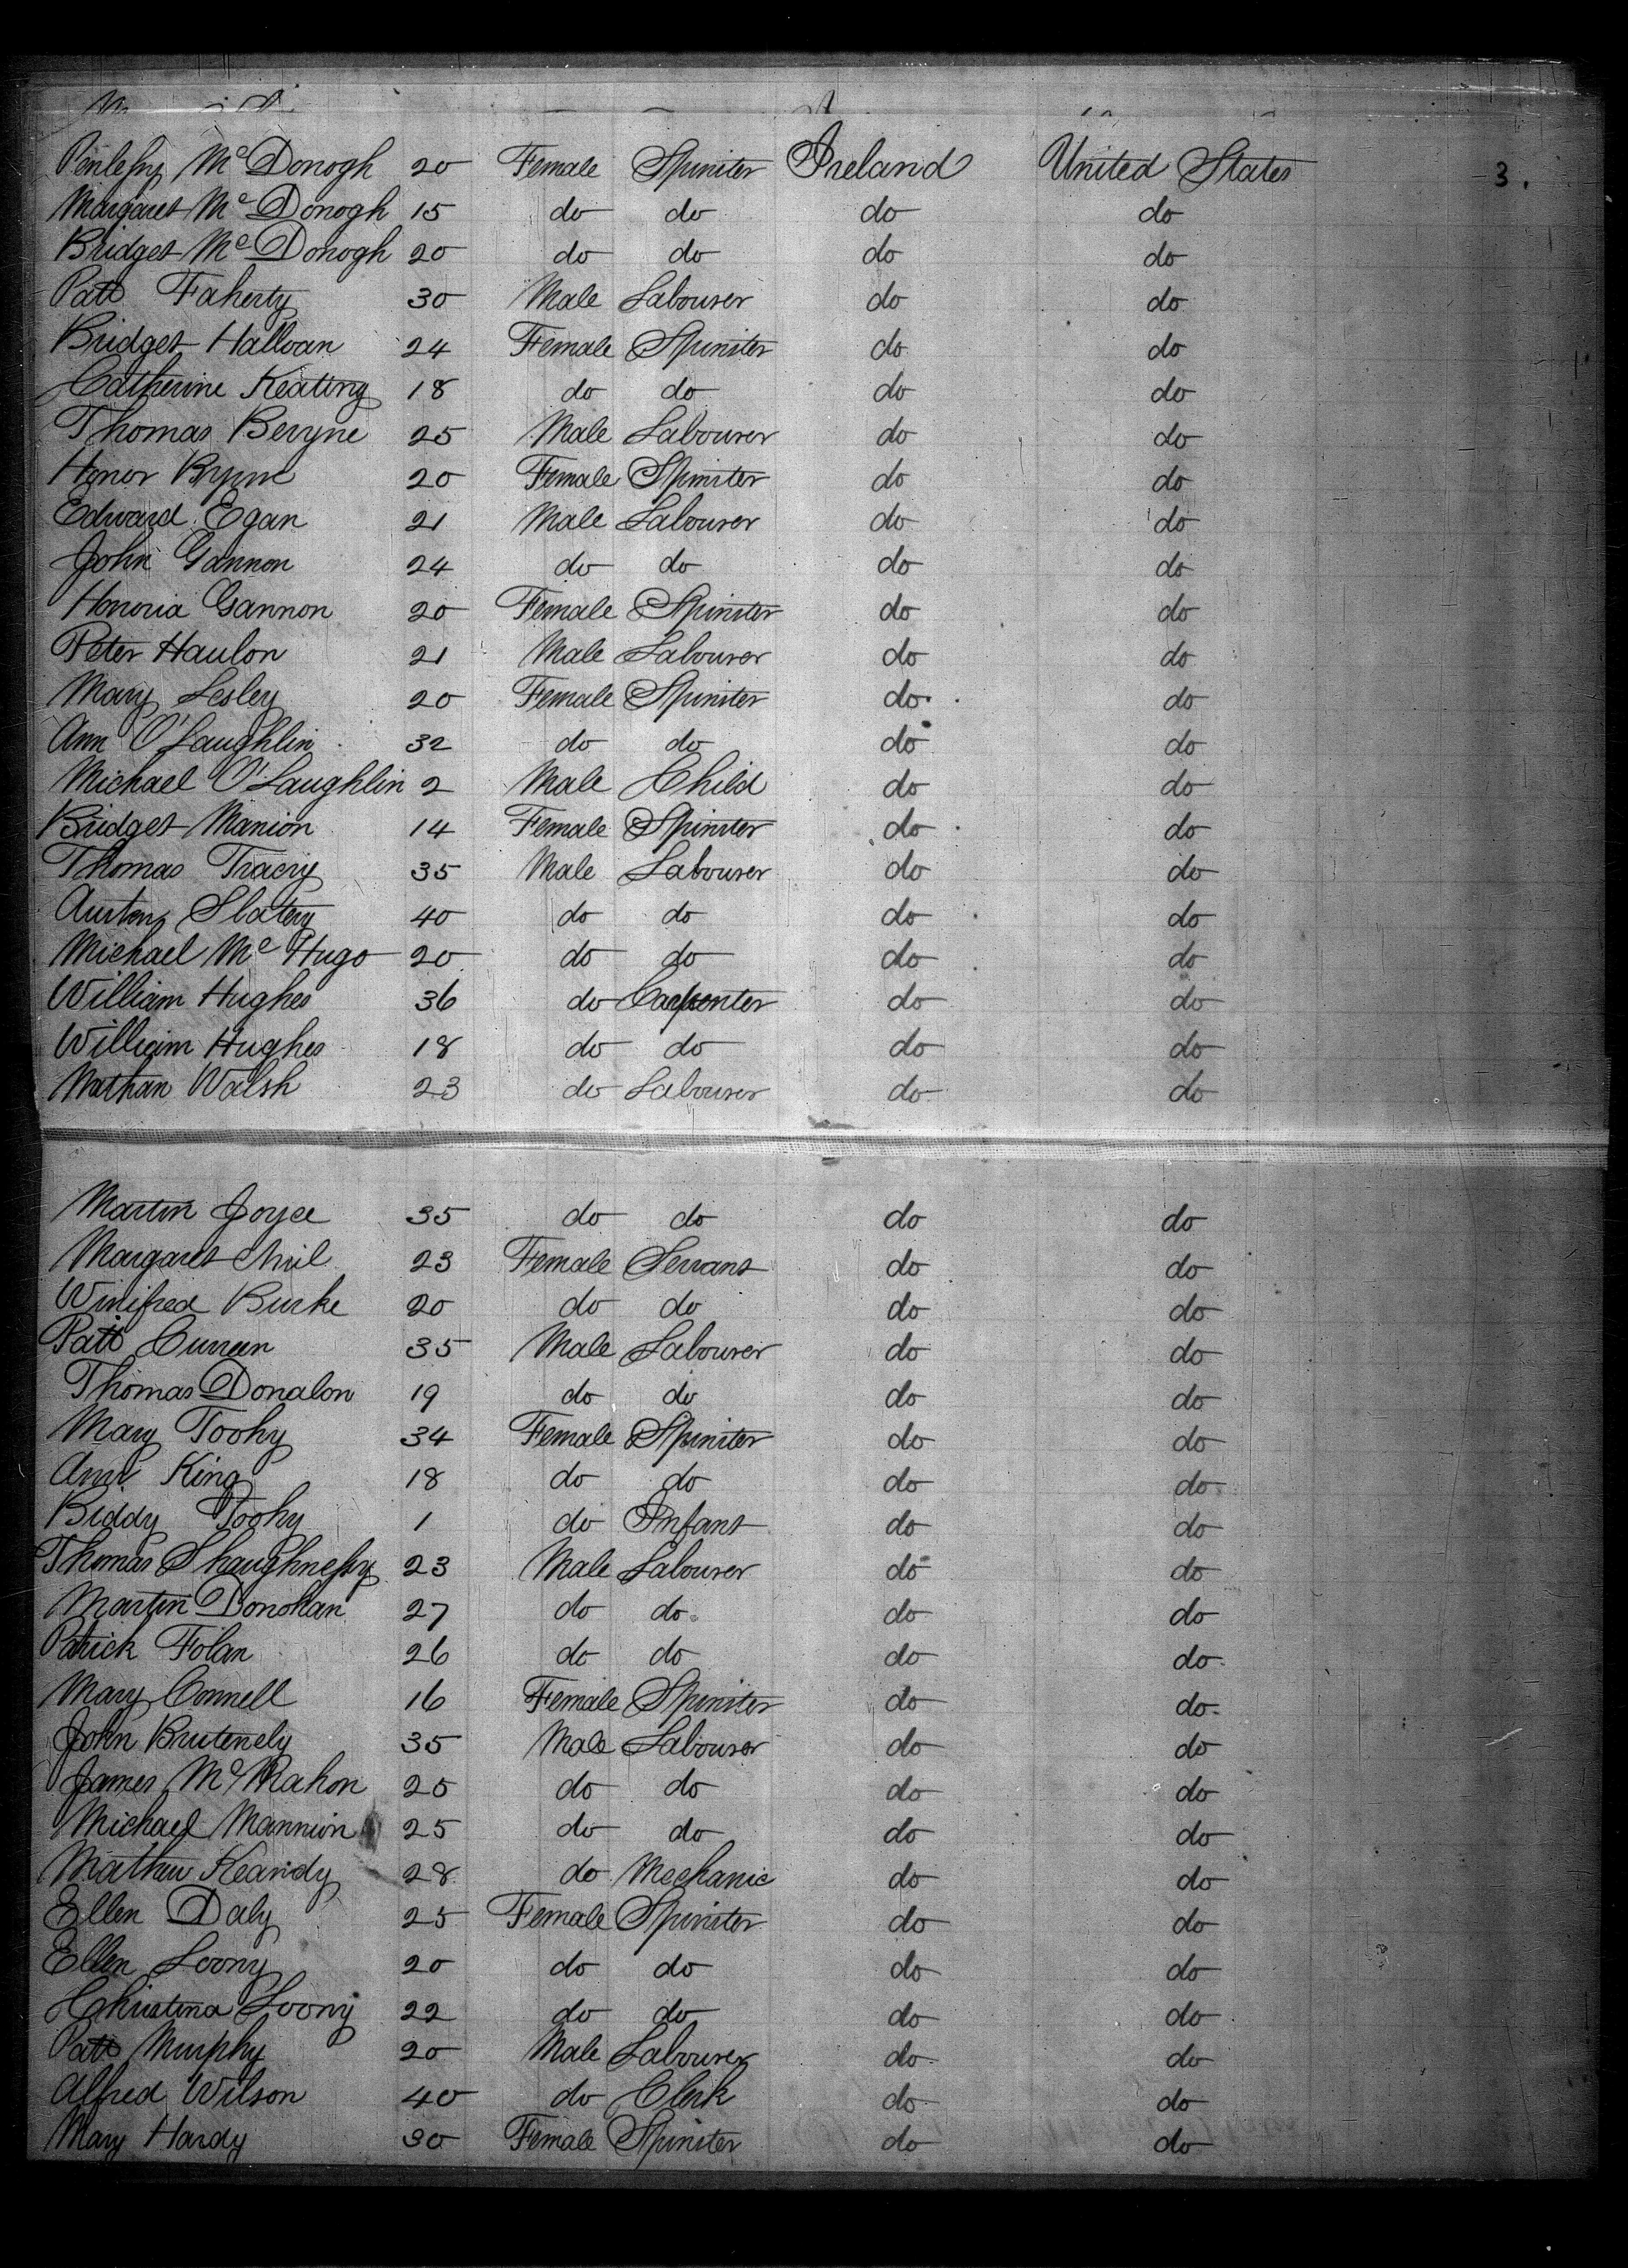 McDonogh 20 Female Spinster Ireland United States 3.
Margaret McDonogh 15 do do do do
Bridget McDonogh 20 do do do do
Patt Faherty 30 Male Labourer do do
Bridget Halloan 24 Female Spinster do do
Catherine Keating 18 do do do do
Thomas Beryne 25 Male Labourer do do
Honor Byrne 20 Female Spinster do do
Edward Egan 21 Male Labourer do do
John Gannon 24 do do do do
Honoria Gannon 20 Female Spinster do do
Peter Haulon 21 Male Labourer do do
Mary Lesley 20 Female Spinster do do
Ann O'Laughlin 32 do do do do
Michael O'Laughlin 2 Male Child do do
Bridget Manion 14 Female Spinster do do
Thomas Tracey 35 Male Labourer do do
Austen Slatery 40 do do do do
Michael McHugo 20 do do do do
William Hughes 36 do Carpenter do do
William Hughes 18 do do do do
Mathan Walsh 23 do Labourer do do
Martin Joyce 35 do do do do
Margaret 23 Female Servant do do
Winifred Burke 20 do do do do
Patt Curreen 35 Male Labourer do do
Thomas Donalon 19 do do do do
Mary Toohy 34 Female Spinster do do
Ann King 18 do do do do
Biddy Toohy 1 do Infant do do
Thomas Shaughnessy 23 Male Labourer do do
Martin Donohan 27 do do do do
Patrick Folan 26 do do do do
Mary Connell 16 Female Spinster do do
John Brutenely 35 Male Labourer do do
James McMahon 25 do do do do
Michael Mannion 25 do do do do
Mathew Keardy 28 do Mechanic do do
Ellen Daly 25 Female Spinster do do
Ellen Loony 20 do do do do
Christina Loony 22 do do do do
Patt Murphy 20 Male Labourer do do
Alfred Wilson 40 do Clerk do do
Mary Hardy 30 Female Spinster do do